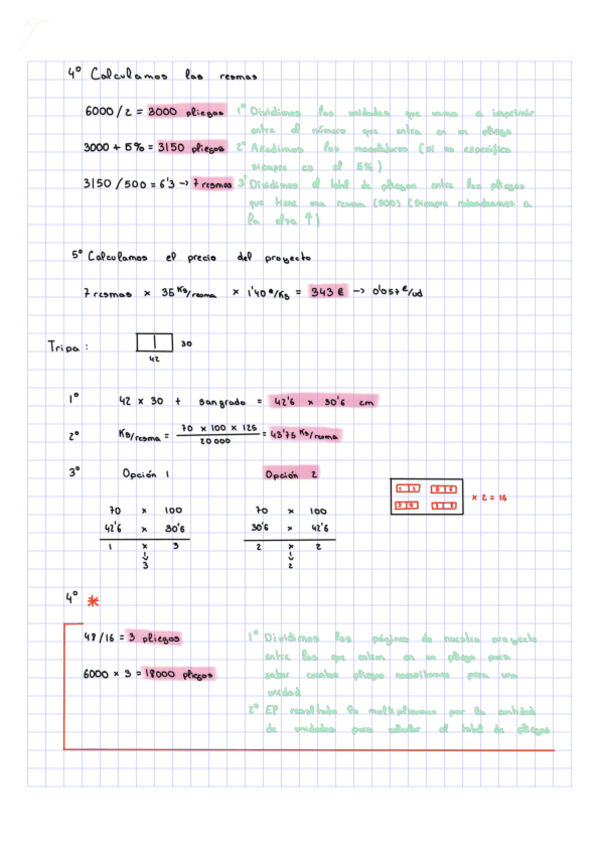 4º Calculamos las resmas
6000 / 2 = 3000 pliegos 1º Dividimos las unidades que vamos a imprimir
entre el número que entra en un pliego
3000 + 5% = 3150 pliegos 2º Añadimos las maculaturas (si no especifica
siempre es el 5%)
3150 / 500 = 6'3 → 7 resmas 3º Dividimos el total de pliegos entre los pliegos
que tiene una resma (500) (Siempre redondeamos a
la alza ↑)
5º Calculamos el precio del proyecto
7 resmas × 35 Kg/resma × 1'40 €/Kg = 343 € → 0'057 €/ud
Tripa: 30
42
1º 42 x 30 + sangrado = 42'6 x 30'6 cm
2º Kg/resma = 70 x 100 x 125 / 20000 = 43'75 Kg/resma
3º Opción 1 Opción 2
70 x 100 70 x 100
42'6 x 30'6 30'6 x 42'6
1 x 3 2 x 2
3 2
x 2 = 16
4º *
48/16 = 3 pliegos 1º Dividimos las páginas de nuestro proyecto
entre las que entran en un pliego para
saber cuantos pliegos necesitamos para una
unidad
6000 x 3 = 18000 pliegos
2º El resultado lo multiplicamos por la cantidad
de unidades para calcular el total de pliegos